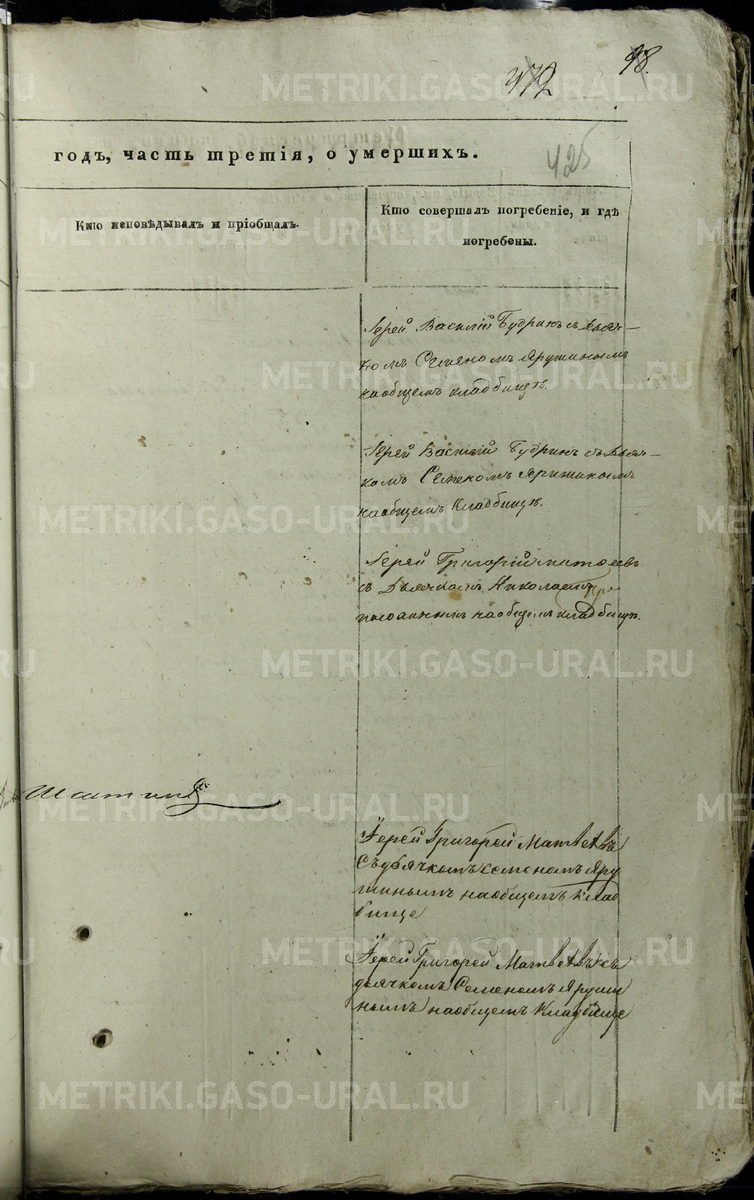 98.
472
425
годъ, часть третія, о умершихъ.
Кто исповѣдывалъ и пріобщалъ.
Кто совершалъ погребеніе, и гдѣ
погребены.
Іерей Василій Будринъ съ дьяч-
комъ Семеномъ Ярушинымъ
на общемъ кладбищѣ.
Іерей Василій Будринъ съ дьяч-
комъ Семеномъ
на общемъ Кладбищѣ.
Іерей Григорій
с Дьячкомъ Николаемъ
на общемъ кладбищѣ.
Іерей Григорей Матвеевъ
Съ дьячкомъ семеномъ Яру
шинымъ на общемъ Клад
бище
Іерей Григорей Матвеевъ съ
дьячкомъ Семеномъ Яруши
нымъ на общемъ Кладбище
METRIKI.GASO-URAL.RU